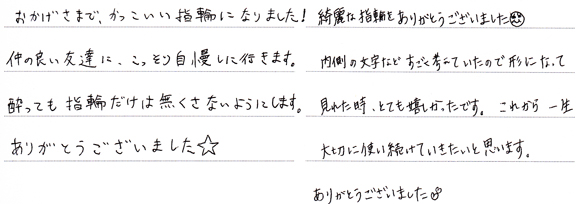 おかげさまで、かっこいい指輪になりました!
仲の良い友達に、こっそり自慢しに行きます。
酔っても指輪だけは無くさないようにします。
ありがとうございました☆
綺麗な指輪をありがとうございました
内側の文字などすごく考えていたので形になって
見れた時、とても嬉しかったです。これから一生
大切に使い続けていきたいと思います。
ありがとうございました